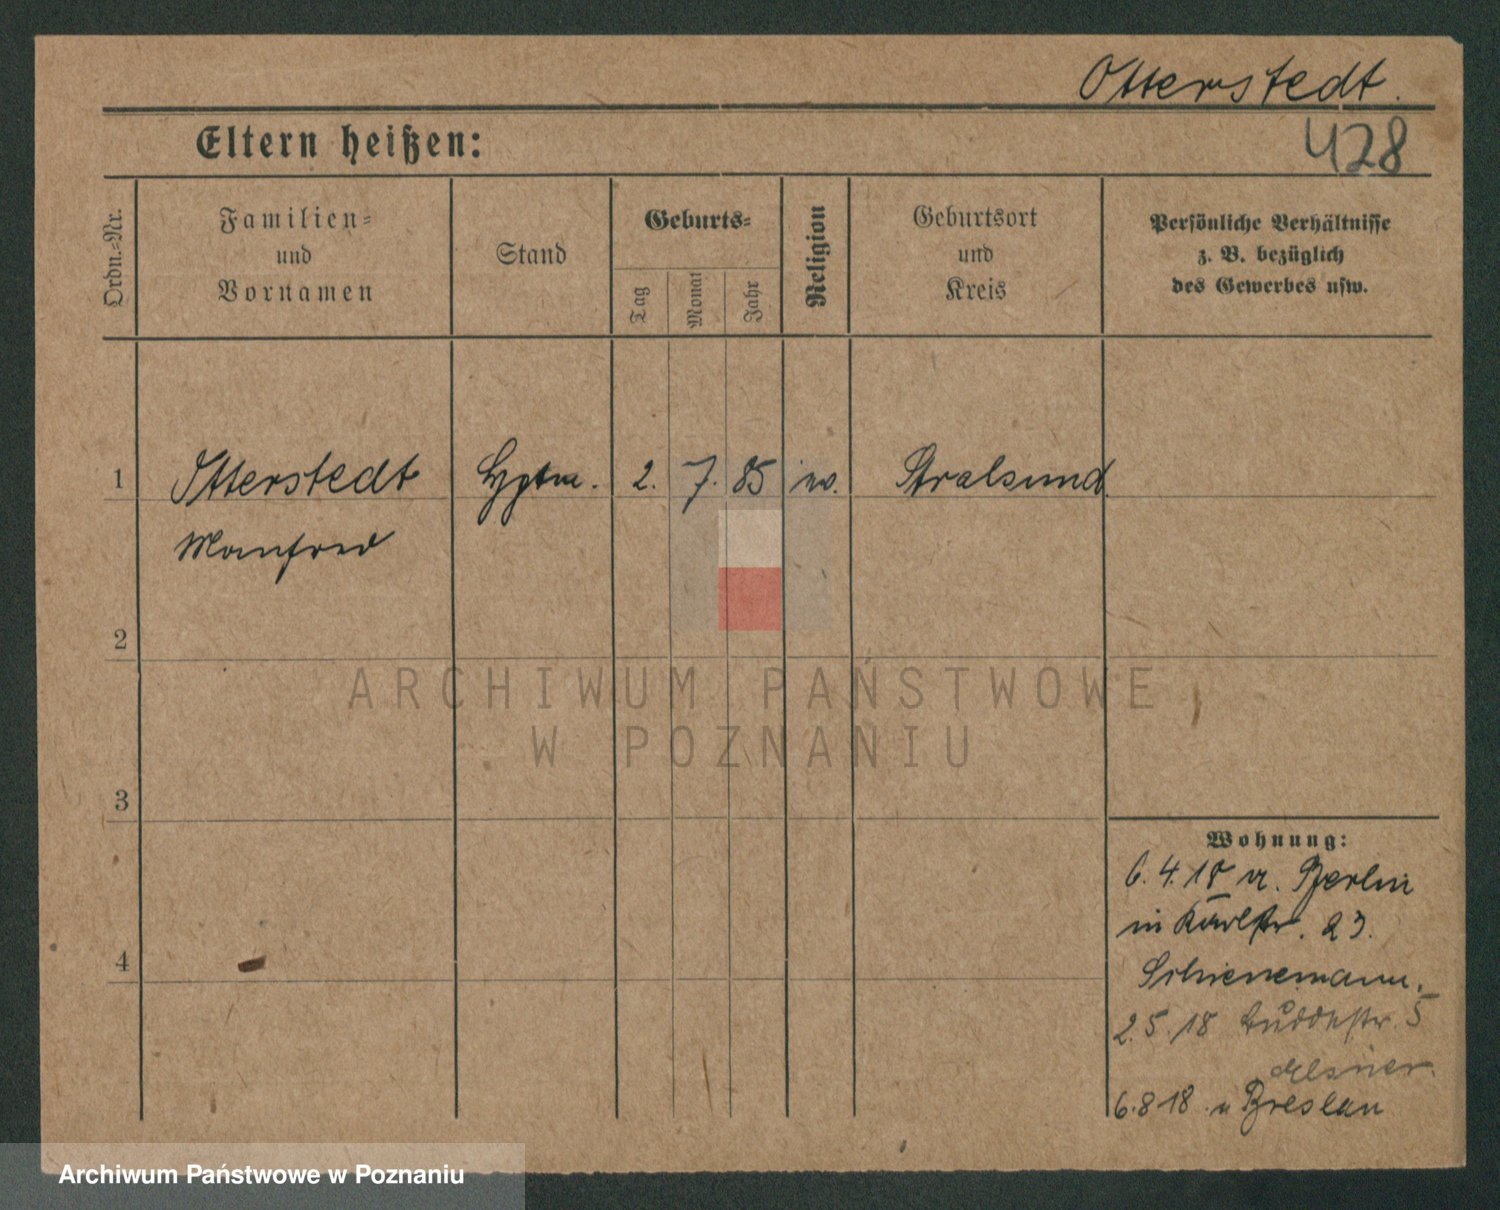 Otterstedt.
Eltern heißen:
428
Ordn.=Nr.
Familien=
und
Vornamen
Stand
Geburts=
Tag
Monat
Jahr
Religion
Geburtsort
und
Kreis
Persönliche Verhältnisse
z. B. bezüglich
des Gewerbes usw.
1 Otterstedt Hptm. 2. 7. 85 ev. Stralsund.
Manfred
2
3
4
Wohnung:
6.4.18 v. Berlin
in Karlstr. 23.
Schienemann.
2.5.18 Buddestr. 5
Elsner.
6.8 18. n Breslau
ARCHIWUM PAŃSTWOWE
W POZNANIU
Archiwum Państwowe w Poznaniu